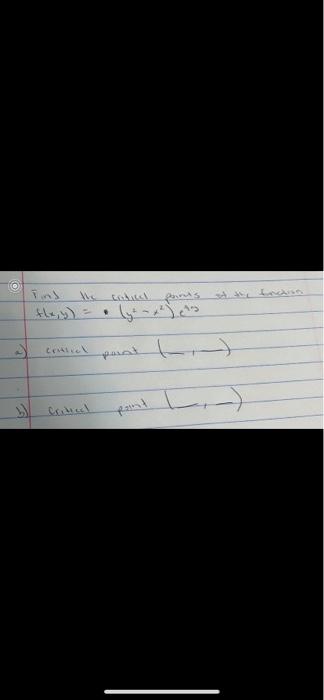 Find the critical points of the function
f(x,y) = • (y² - x²) e⁹ʸ
a) critical point (_, _)
b) critical point (_, _)